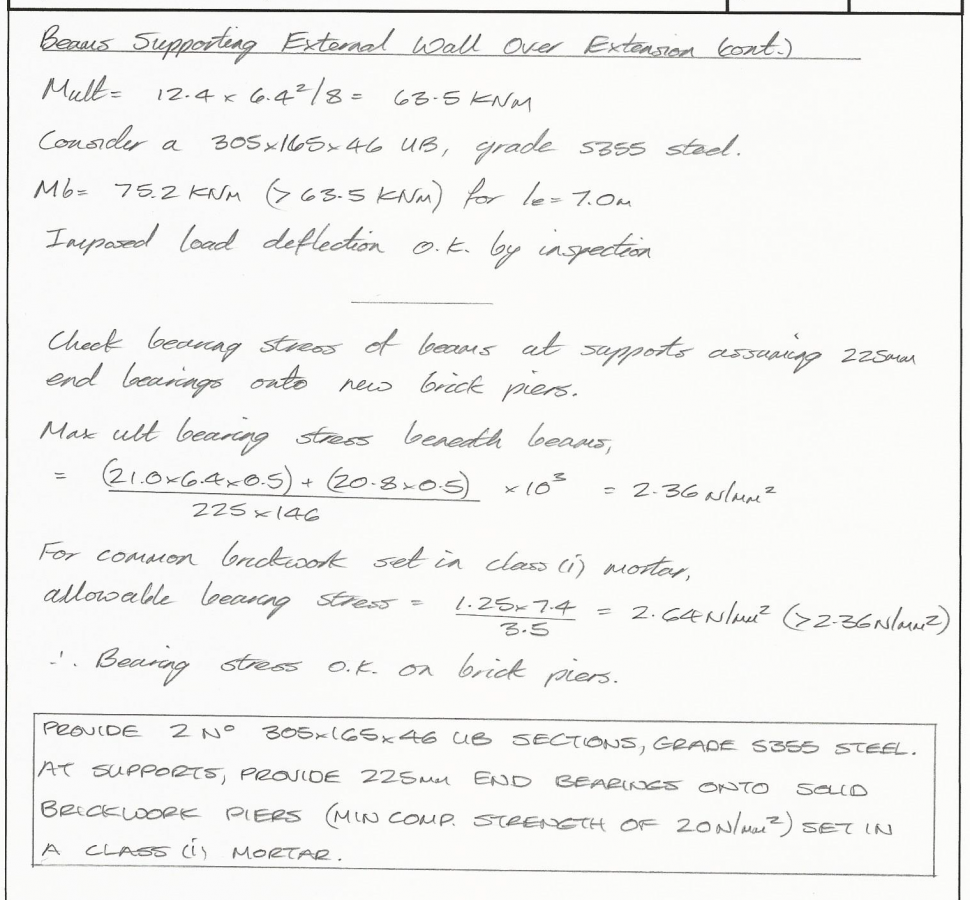 Beams Supporting External Wall Over Extension (cont.)
Mult = 12.4 x 6.4²/8 = 63.5 KNm
Consider a 305x165x46 UB, grade S355 steel.
Mb = 75.2 KNm (> 63.5 KNm) for le = 7.0m
Imposed load deflection o.k. by inspection
Check bearing stress of beams at supports assuming 225mm
end bearings onto new brick piers.
Max ult bearing stress beneath beams,
= (21.0x6.4x0.5) + (20.8x0.5) / 225x146 x10³ = 2.36 N/mm²
For common brickwork set in class (i) mortar,
allowable bearing stress = 1.25x7.4 / 3.5 = 2.64 N/mm² (>2.36N/mm²)
∴ Bearing stress o.k. on brick piers.
PROVIDE 2 Nº 305x165x46 UB SECTIONS, GRADE S355 STEEL.
AT SUPPORTS, PROVIDE 225mm END BEARINGS ONTO SOLID
BRICKWORK PIERS (MIN COMP. STRENGTH OF 20N/mm²) SET IN
A CLASS (i) MORTAR.